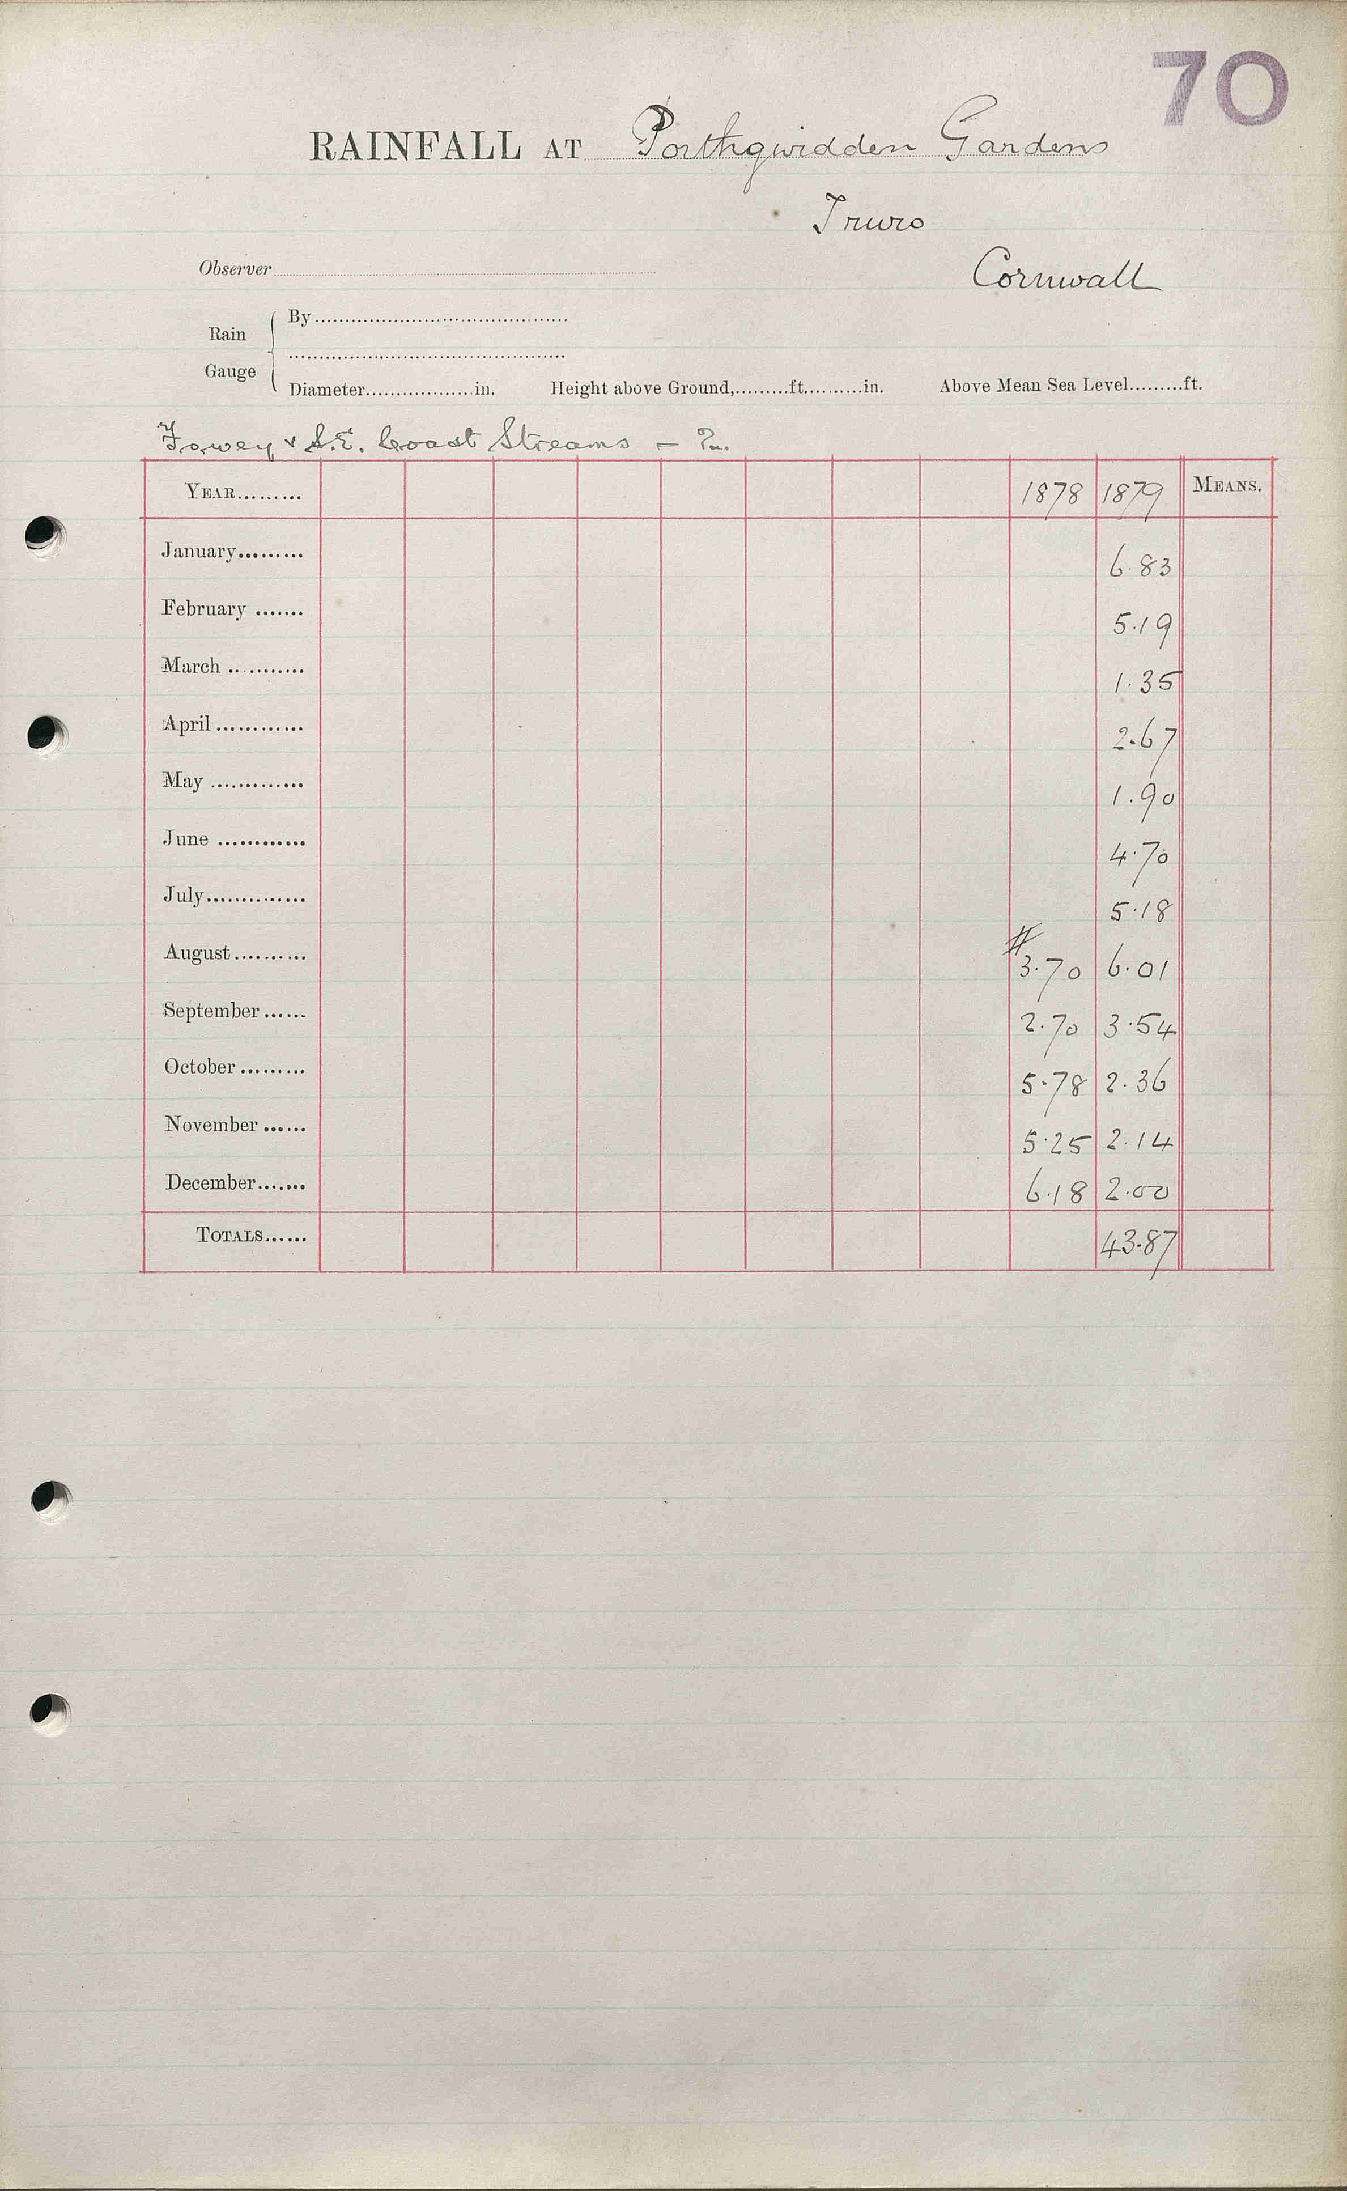 70
RAINFALL AT Porthgwidden Gardens
Truro
Observer
Cornwall
Rain Gauge { By
Diameter in. Height above Ground, ft. in. Above Mean Sea Level ft.
Fowey & S.E. Coast Streams —
YEAR 1878 1879 MEANS.
January 6.83
February 5.19
March 1.35
April 2.67
May 1.90
June 4.70
July 5.18
August # 3.70 6.01
September 2.70 3.54
October 5.78 2.36
November 5.25 2.14
December 6.18 2.00
TOTALS 43.87